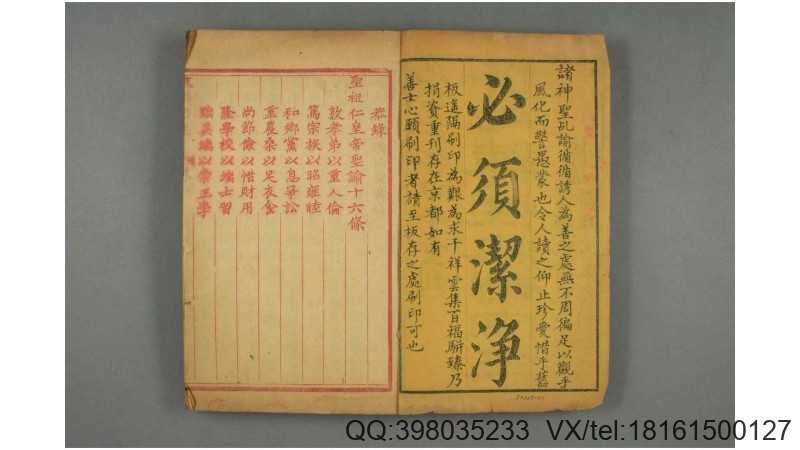 諸神聖乩諭循循誘人為善之處無不周徧足以觀乎
風化而警愚蒙也令人讀之仰止珍愛惜乎舊
必須潔净
板遥隔刷印為艱茲求千祥雲集百福駢臻乃
捐資重刊存在京都如有
善士心願刷印者請至板存之處刷印可也
恭錄
聖祖仁皇帝聖諭十六條
敦孝弟以重人倫
篤宗族以昭雍睦
和鄉黨以息爭訟
重農桑以足衣食
尚節儉以惜財用
隆學校以端士習
黜異端以崇正學
QQ:398035233 VX/tel:18161500127